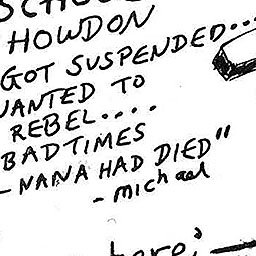 SCHOOL
HOWDON
GOT SUSPENDED...
WANTED TO
REBEL....
BADTIMES
-NANA HAD DIED"
- michael